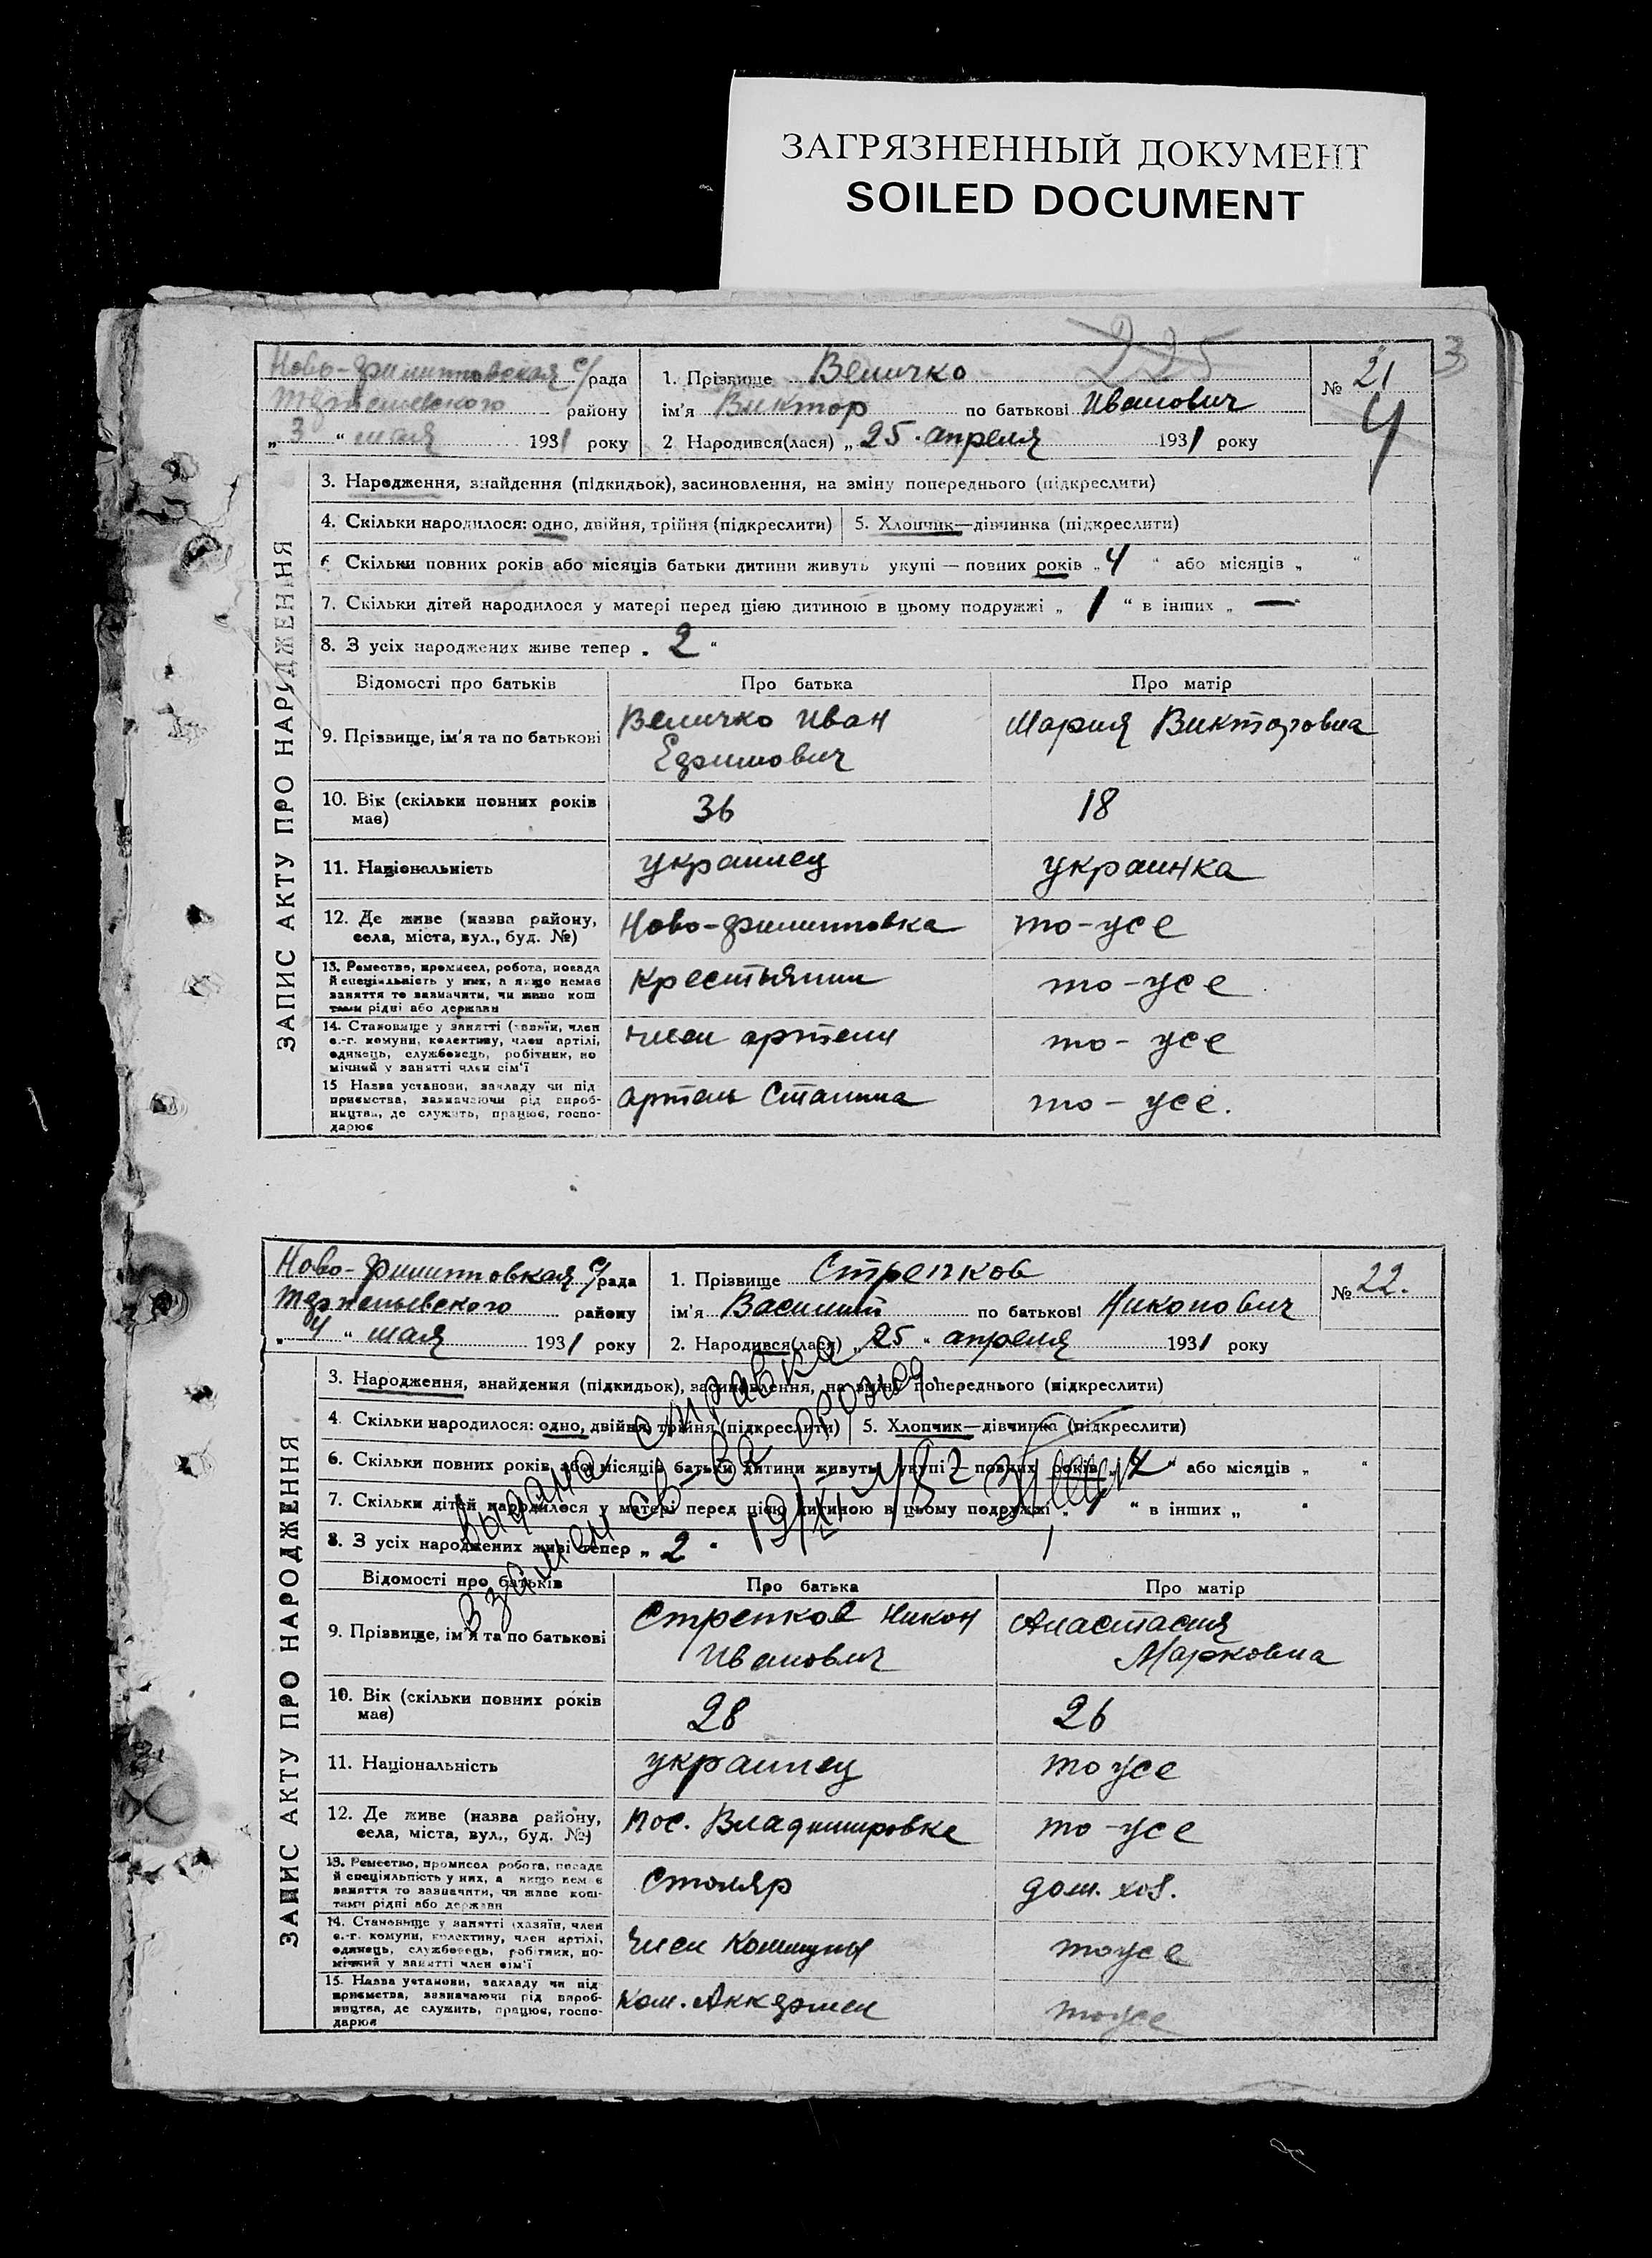 ЗАГРЯЗНЕННЫЙ ДОКУМЕНТ
SOILED DOCUMENT
225
3
Ново-Филипповская с/рада
району
„ 3 “ мая 1931 року
1. Прізвище Величко
ім'я Виктор по батькові Иванович
2 Народився(лася) „ 25 · апреля 1931 року
№ 21
4
ЗАПИС АКТУ ПРО НАРОДЖЕННЯ
3. Народження, знайдення (підкидьок), засиновлення, на зміну попереднього (підкреслити)
4. Скільки народилося: одно, двійня, трійня (підкреслити) 5. Хлопчик—дівчинка (підкреслити)
6. Скільки повних років або місяців батьки дитини живуть укупі — повних років „ 4 “ або місяців „ “
7. Скільки дітей народилося у матері перед цією дитиною в цьому подружжі „ 1 “ в інших „ — “
8. З усіх народжених живе тепер „ 2 “
Відомості про батьків Про батька Про матір
9. Прізвище, ім'я та по батькові Величко Иван Ефимович Мария Викторовна
10. Вік (скільки повних років має) 36 18
11. Національність украинец украинка
12. Де живе (назва району, села, міста, вул., буд. №) Ново-Филипповка то-усе
13. Ремество, промисел, робота, посада й спеціяльність у них, а якщо немає заняття то зазначити, чи живе коштами рідні або держави крестьянин то-усе
14. Становище у занятті (хазяїн, член с.-г. комуни, колективу, член артілі, одинець, службовець, робітник, помічний у занятті член сім'ї член артели то-усе
15 Назва установи, закладу чи підприємства, зазначаючи рід виробництва, де служить, працює, господарює артель Сталина то-усе.
Ново-Филипповская с/рада
району
„ 4 “ мая 1931 року
1. Прізвище Стрепков
ім'я Василий по батькові Никонович
2. Народився(лася) „ 25 “ апреля 1931 року
№ 22.
ЗАПИС АКТУ ПРО НАРОДЖЕННЯ
3. Народження, знайдення (підкидьок), засиновлення, на зміну попереднього (підкреслити)
4. Скільки народилося: одно, двійня, трійня (підкреслити) 5. Хлопчик—дівчинка (підкреслити)
6. Скільки повних років або місяців батьки дитини живуть укупі — повних років „ “ або місяців „ “
7. Скільки дітей народилося у матері перед цією дитиною в цьому подружжі „ 1 “ в інших „
8. З усіх народжених живі тепер „ 2 “
Выдана справка
взамен св-ва о рожд.
Відомості про батьків Про батька Про матір
9. Прізвище, ім'я та по батькові Стрепков Никон Иванович Анастасия Марковна
10. Вік (скільки повних років має) 28 26
11. Національність украинец то усе
12. Де живе (назва району, села, міста, вул., буд. №) пос. Владимировка то-усе
13. Ремество, промисел робота, посада й спеціяльність у них, а якщо немає заняття то зазначити, чи живе коштами рідні або держави Столяр дом. хоз.
14. Становище у занятті (хазяїн, член с.-г. комуни, колективу, член артілі, одинець, службовець, робітник, помічний у занятті член сім'ї член Коммуны то усе
15. Назва установи, закладу чи підприємства, зазначаючи рід виробництва, де служить, працює, господарює ком. Аккермен то усе